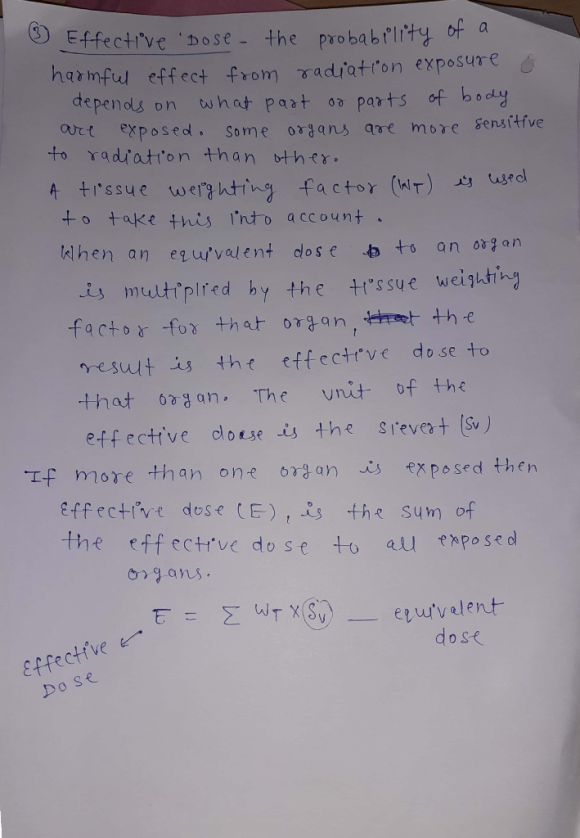 ③ Effective Dose - the probability of a
harmful effect from radiation exposure
depends on what part or parts of body
are exposed. Some organs are more sensitive
to radiation than other.
A tissue weighting factor (WT) is used
to take this into account.
When an equivalent dose to an organ
is multiplied by the tissue weighting
factor for that organ, the
result is the effective dose to
that organ. The unit of the
effective dose is the sievert (Sv)
If more than one organ is exposed then
Effective dose (E), is the sum of
the effective dose to all exposed
organs.
E = Σ WT X Sv — equivalent
dose
Effective
Dose